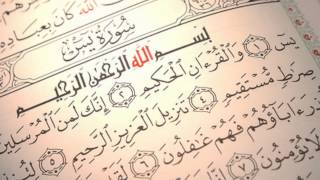 الله كان بعباده
سورة يس
بسم الله الرحمن الرحيم
يس ١ والقرءان الحكيم ٢ إنك لمن المرسلين
صرط مستقيم ٤ تنزيل العزيز الرحيم
ءاباؤهم فهم غفلون ٦ لقد
لا يؤمنون ٧